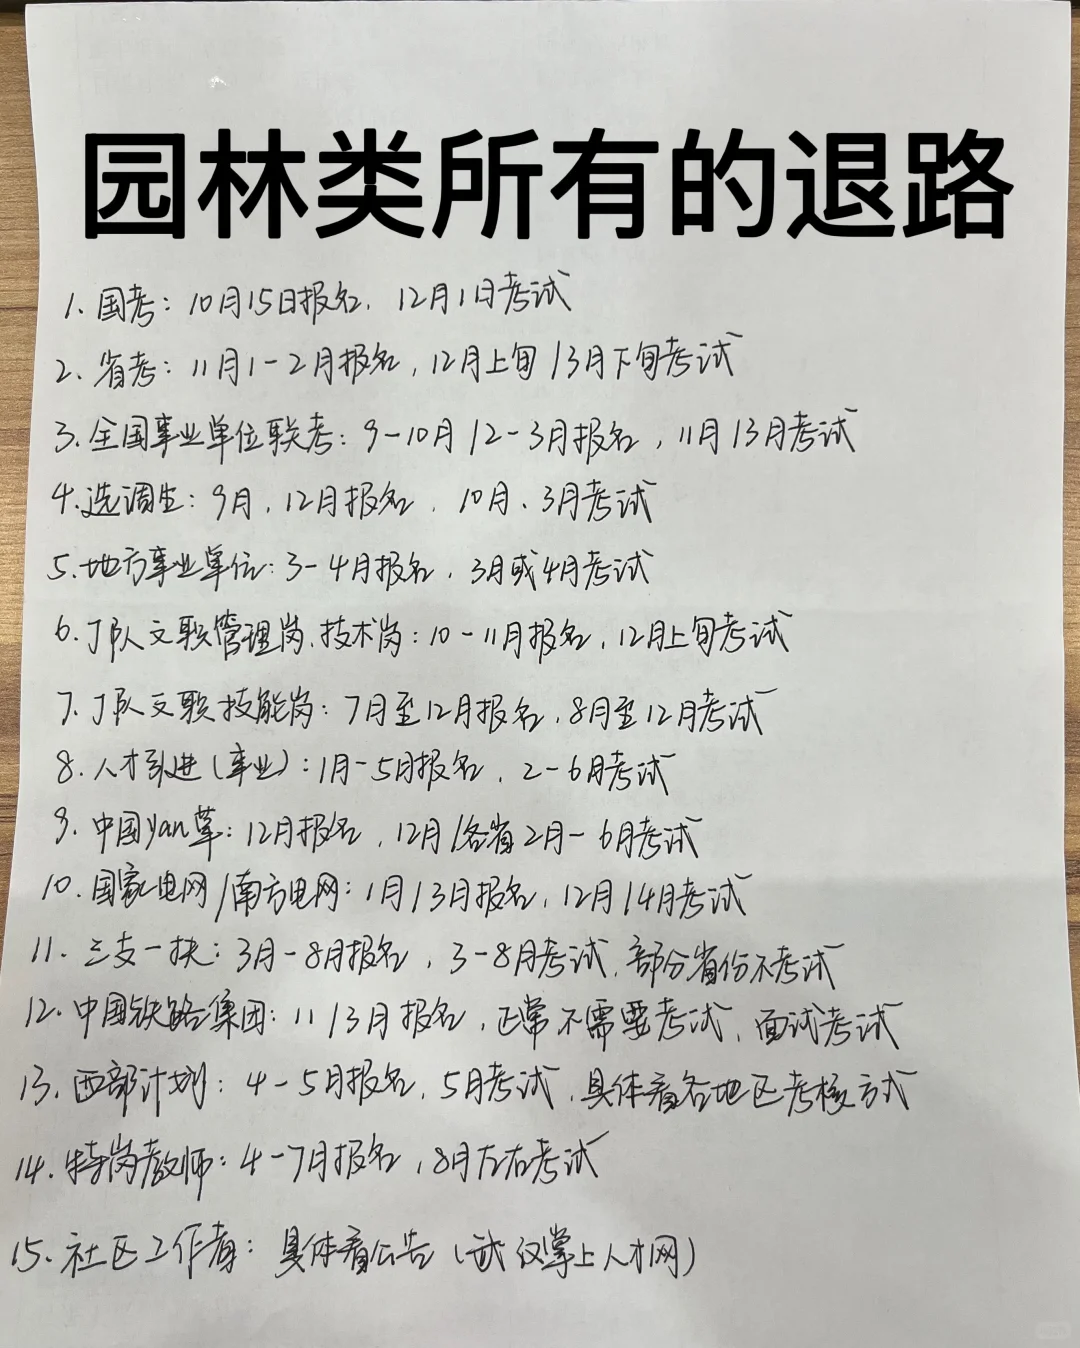 园林类所有的退路
1. 国考：10月15日报名，12月1日考试
2. 省考：11月1-2月报名，12月上旬/3月下旬考试
3. 全国事业单位联考：9-10月/2-3月报名，11月/3月考试
4. 选调生：9月，12月报名，10月、3月考试
5. 地方事业单位：3-4月报名，3月或4月考试
6. J队文职管理岗、技术岗：10-11月报名，12月上旬考试
7. J队文职技能岗：7月至12月报名，8月至12月考试
8. 人才引进（事业）：1月-5月报名，2-6月考试
9. 中国yan草：12月报名，12月/各省2月-6月考试
10. 国家电网/南方电网：1月/3月报名，12月/4月考试
11. 三支一扶：3月-8月报名，3-8月考试，部分省份不考试
12. 中国铁路集团：11/3月报名，正常不需要考试，面试考试
13. 西部计划：4-5月报名，5月考试，具体看各地区考核方式
14. 特岗教师：4-7月报名，8月左右考试
15. 社区工作者：具体看公告（武汉掌上人才网）